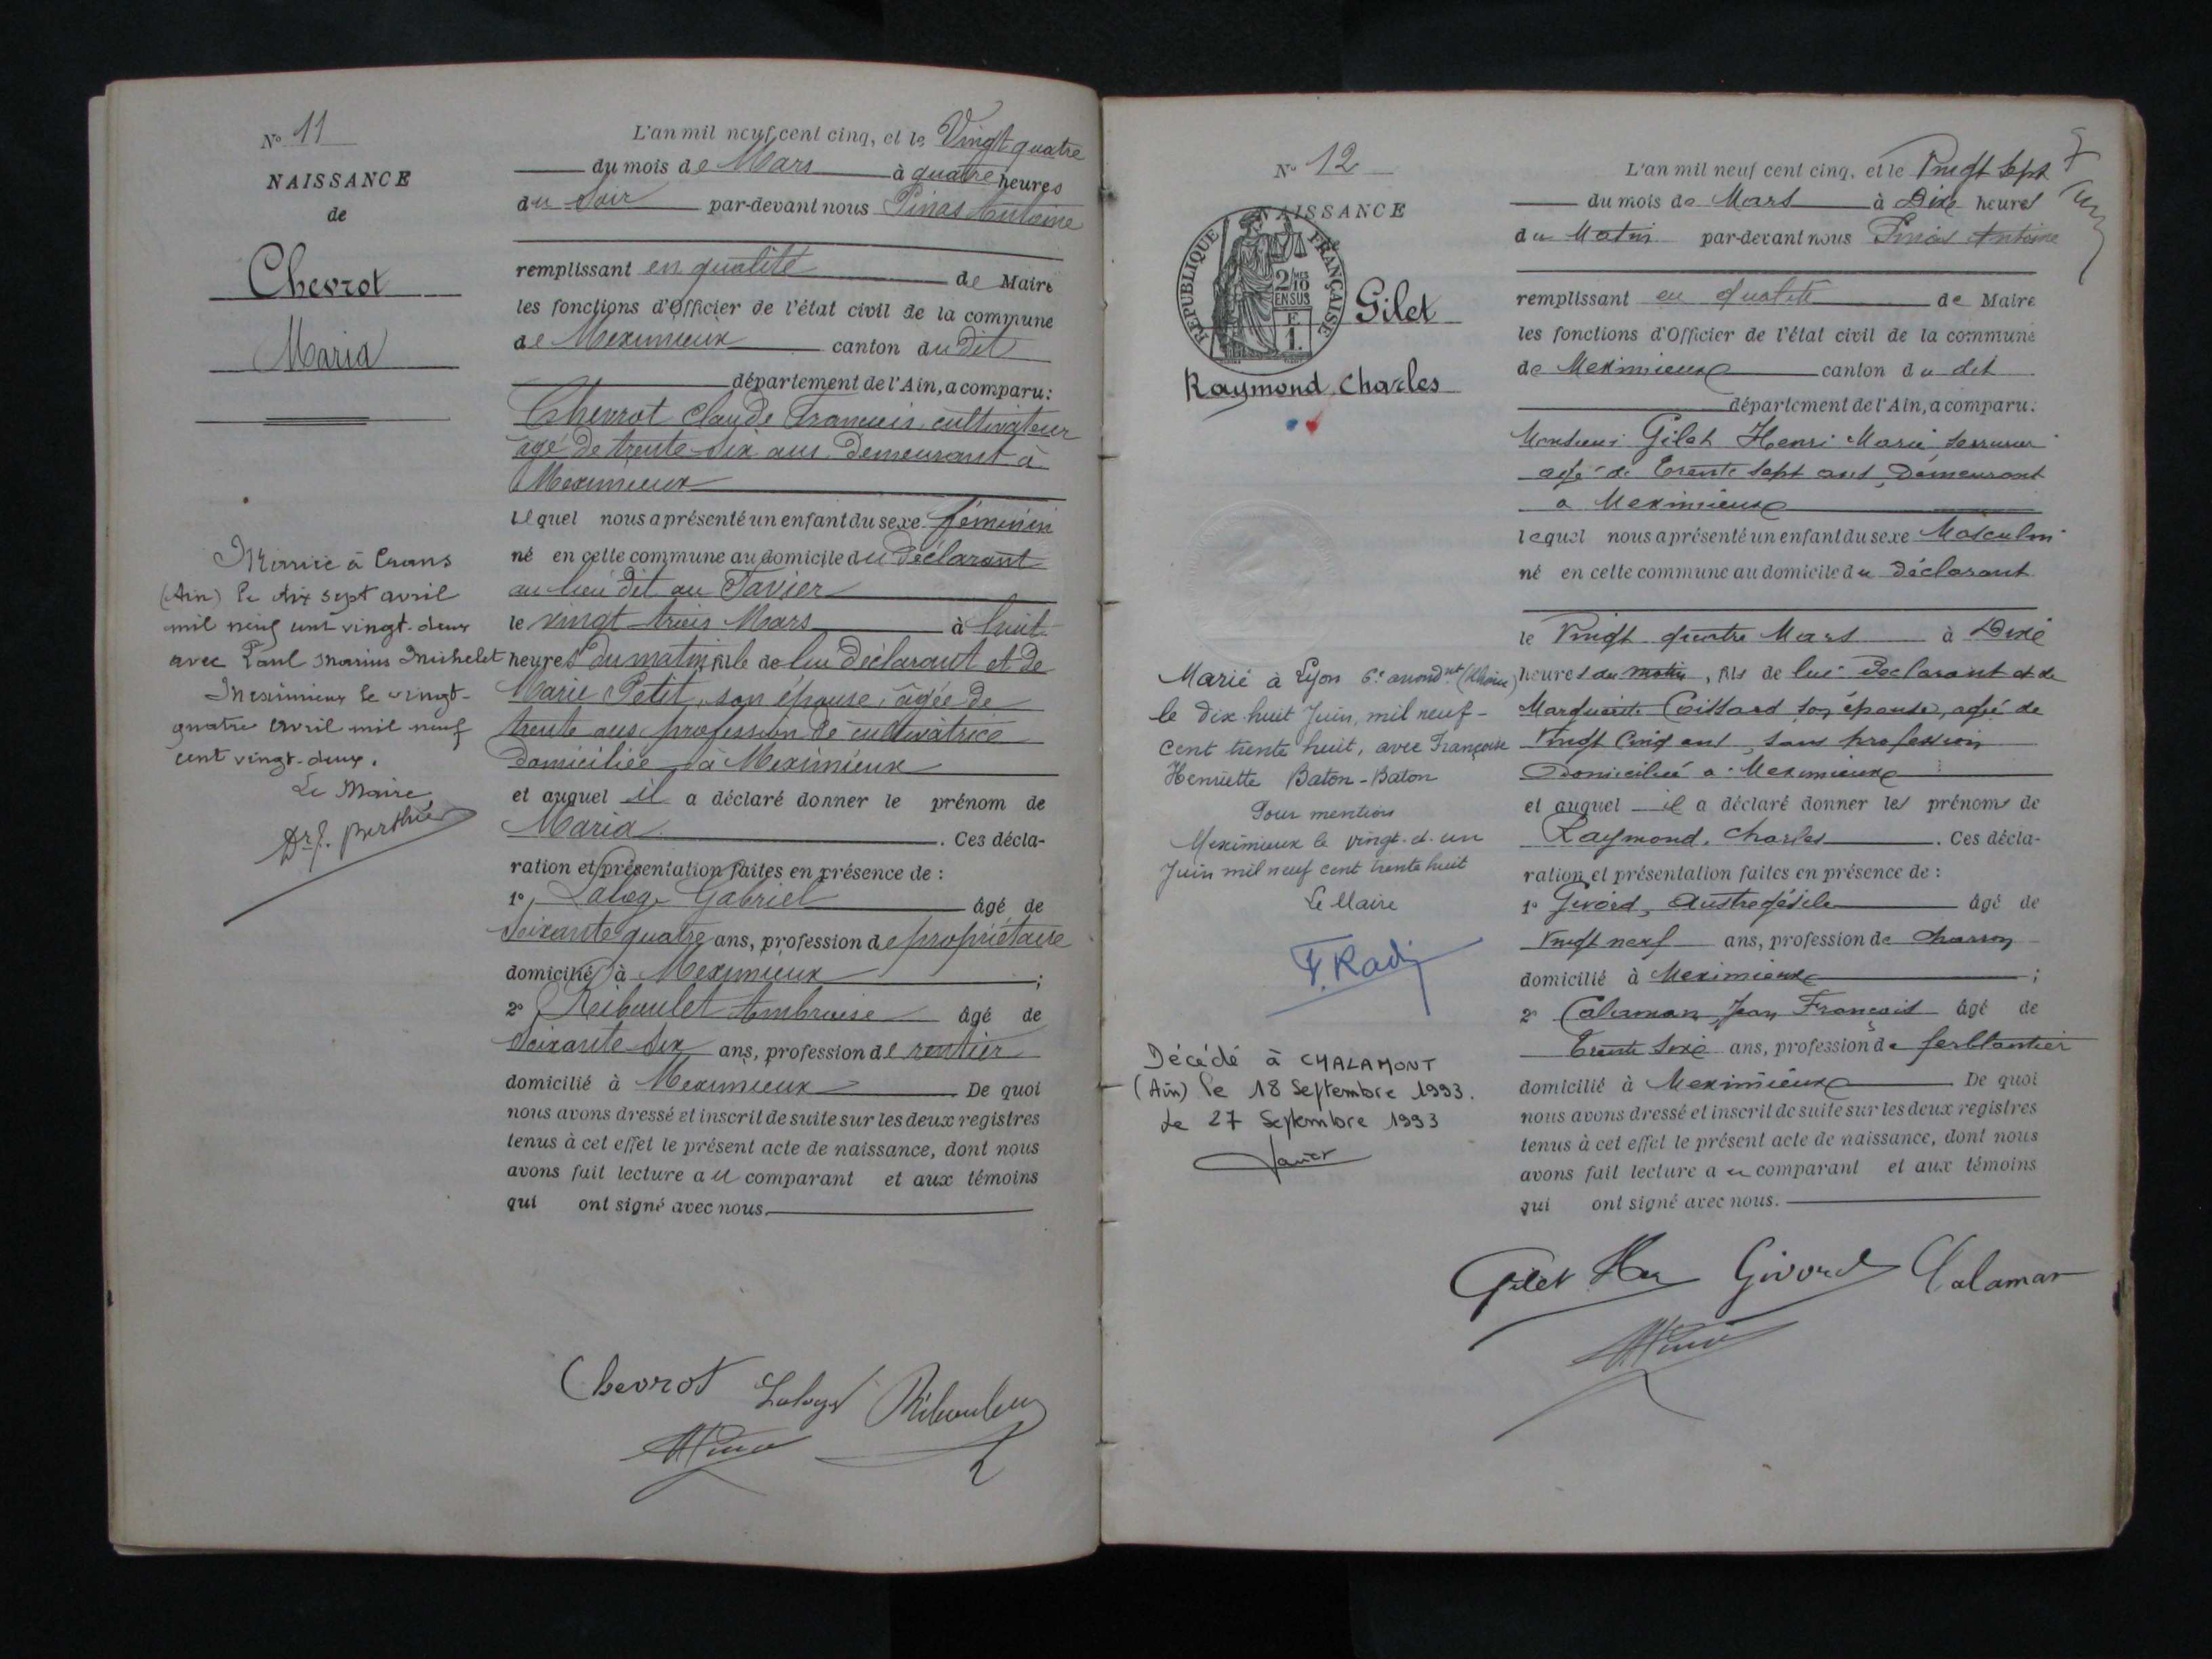 N° 11
NAISSANCE
de
Chevrot
Maria
Mariée à Crans
(Ain) le dix sept avril
mil neuf cent vingt-deux
avec Paul Marius Michelet
Meximieux le vingt-
quatre avril mil neuf
cent vingt-deux.
Le Maire
Dr J. Berthier
L'an mil neuf cent cinq, et le Vingt quatre
du mois de Mars à quatre heures
du Soir par-devant nous Pinas Antoine
remplissant en qualité de Maire
les fonctions d'Officier de l'état civil de la commune
de Meximieux canton du dit
département de l'Ain, a comparu:
Chevrot Claude François cultivateur
âgé de trente six ans demeurant à
Meximieux
lequel nous a présenté un enfant du sexe féminin
né en cette commune au domicile du déclarant
au lieu dit au Tavier
le vingt trois Mars à huit
heures du matin, fille de lui déclarant et de
Marie Petit, son épouse, âgée de
trente ans profession de cultivatrice
domiciliée à Meximieux
et auquel il a déclaré donner le prénom de
Maria. Ces décla-
ration et présentation faites en présence de :
1° Laloge Gabriel âgé de
Soixante quatre ans, profession de propriétaire
domicilié à Meximieux ;
2° Riboulet Ambroise âgé de
Soixante six ans, profession de rentier
domicilié à Meximieux De quoi
nous avons dressé et inscrit de suite sur les deux registres
tenus à cet effet le présent acte de naissance, dont nous
avons fait lecture au comparant et aux témoins
qui ont signé avec nous.
Chevrot Laloge Riboulet
N° 12
NAISSANCE
REPUBLIQUE FRANÇAISE
2/10 MES
EN SUS
F
1.
Gilet
Raymond Charles
Marié à Lyon 6e arrondnt (Rhône)
le dix-huit Juin, mil neuf-
cent trente huit, avec Françoise
Henriette Baton-Baton
Pour mention
Meximieux le vingt-et-un
Juin mil neuf cent trente huit
Le Maire
F. Radi
Décédé à CHALAMONT
(Ain) le 18 Septembre 1993.
Le 27 Septembre 1993
L'an mil neuf cent cinq, et le Vingt Sept
du mois de Mars à Dixe heures
du Matin par-devant nous Pinas Antoine
remplissant en qualité de Maire
les fonctions d'Officier de l'état civil de la commune
de Meximieux canton du dit
département de l'Ain, a comparu.
Monsieur Gilet Henri Marie, Serrurier
agé de Trente Sept ans, Demeurant
a Meximieux
lequel nous a présenté un enfant du sexe Masculin
né en cette commune au domicile du Déclarant
le Vingt quatre Mars à Dixe
heures du matin, fils de lui Déclarant et de
Marguerite Coissard son épouse, agée de
Vingt Cinq ans, sans profession
Domiciliée a Meximieux
et auquel il a déclaré donner les prénoms de
Raymond, Charles. Ces décla-
ration et présentation faites en présence de :
1° Givord, Austregésile âgé de
Vingt neuf ans, profession de Charron
domicilié à Meximieux ;
2° Calaman, Jean François âgé de
Trente Sixe ans, profession de ferblantier
domicilié à Meximieux De quoi
nous avons dressé et inscrit de suite sur les deux registres
tenus à cet effet le présent acte de naissance, dont nous
avons fait lecture au comparant et aux témoins
qui ont signé avec nous.
Gilet Givord Calaman